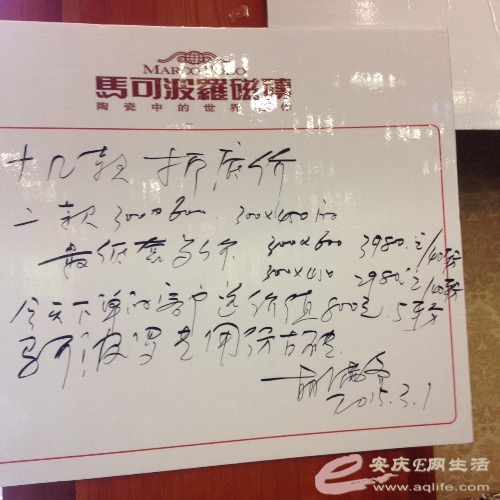 MARCO POLO
馬可波羅磁磚
陶瓷中的世界
十几款 折底价
二款 300×600 300×450
最低套餐价 300×600 3980元/40平方
300×450 2980元/40平方
今天下单的客户送价值800元 5平方
马可波罗专用仿古砖
2015.3.1
安庆E网生活
www.aqlife.com